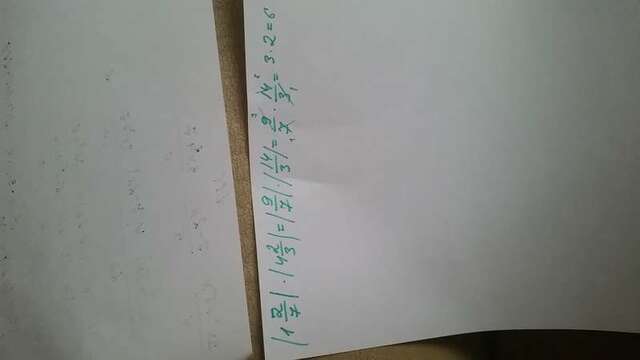 |1 2/7| · |4 2/3| = |9/7| · |14/3| = 9/7 · 14/3 = 3 · 2 = 6